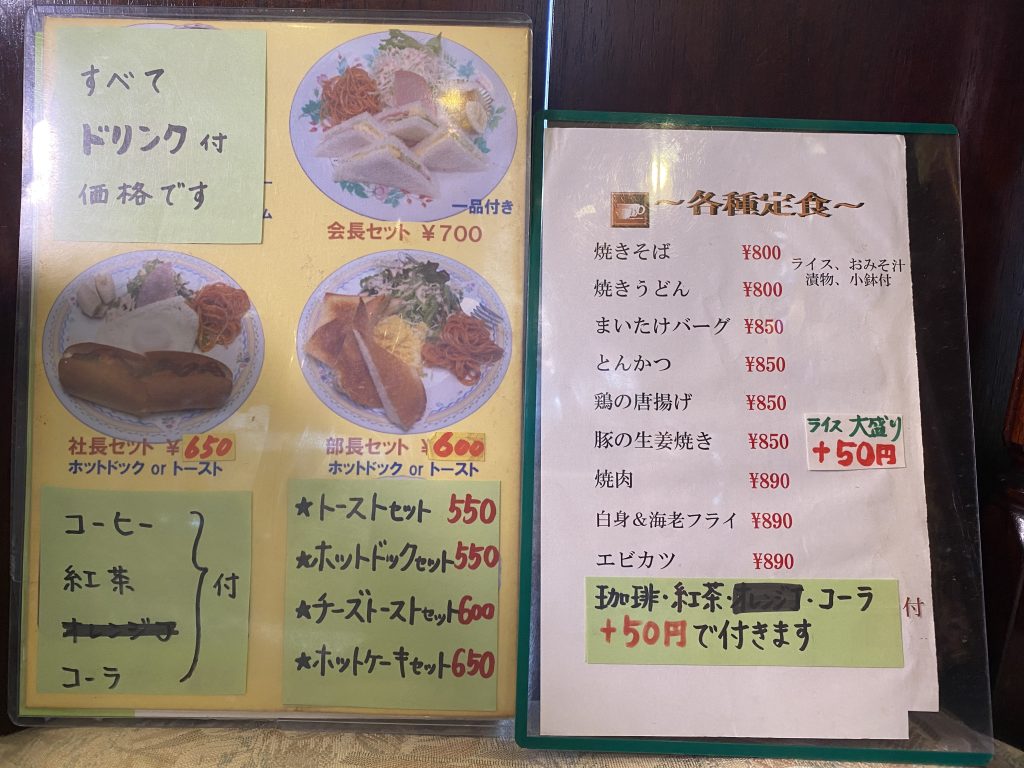 すべて
ドリンク付
価格です
ム
一品付き
会長セット ¥700
社長セット ¥650
ホットドック or トースト
部長セット ¥600
ホットドック or トースト
コーヒー
紅茶
オレンジJ
コーラ
付
★トーストセット 550
★ホットドックセット 550
★チーズトーストセット 600
★ホットケーキセット 650
～各種定食～
焼きそば ¥800
ライス、おみそ汁
漬物、小鉢付
焼きうどん ¥800
まいたけバーグ ¥850
とんかつ ¥850
鶏の唐揚げ ¥850
豚の生姜焼き ¥850
ライス 大盛り
+50円
焼肉 ¥890
白身&海老フライ ¥890
エビカツ ¥890
珈琲・紅茶・オレンジJ・コーラ
+50円で付きます
付